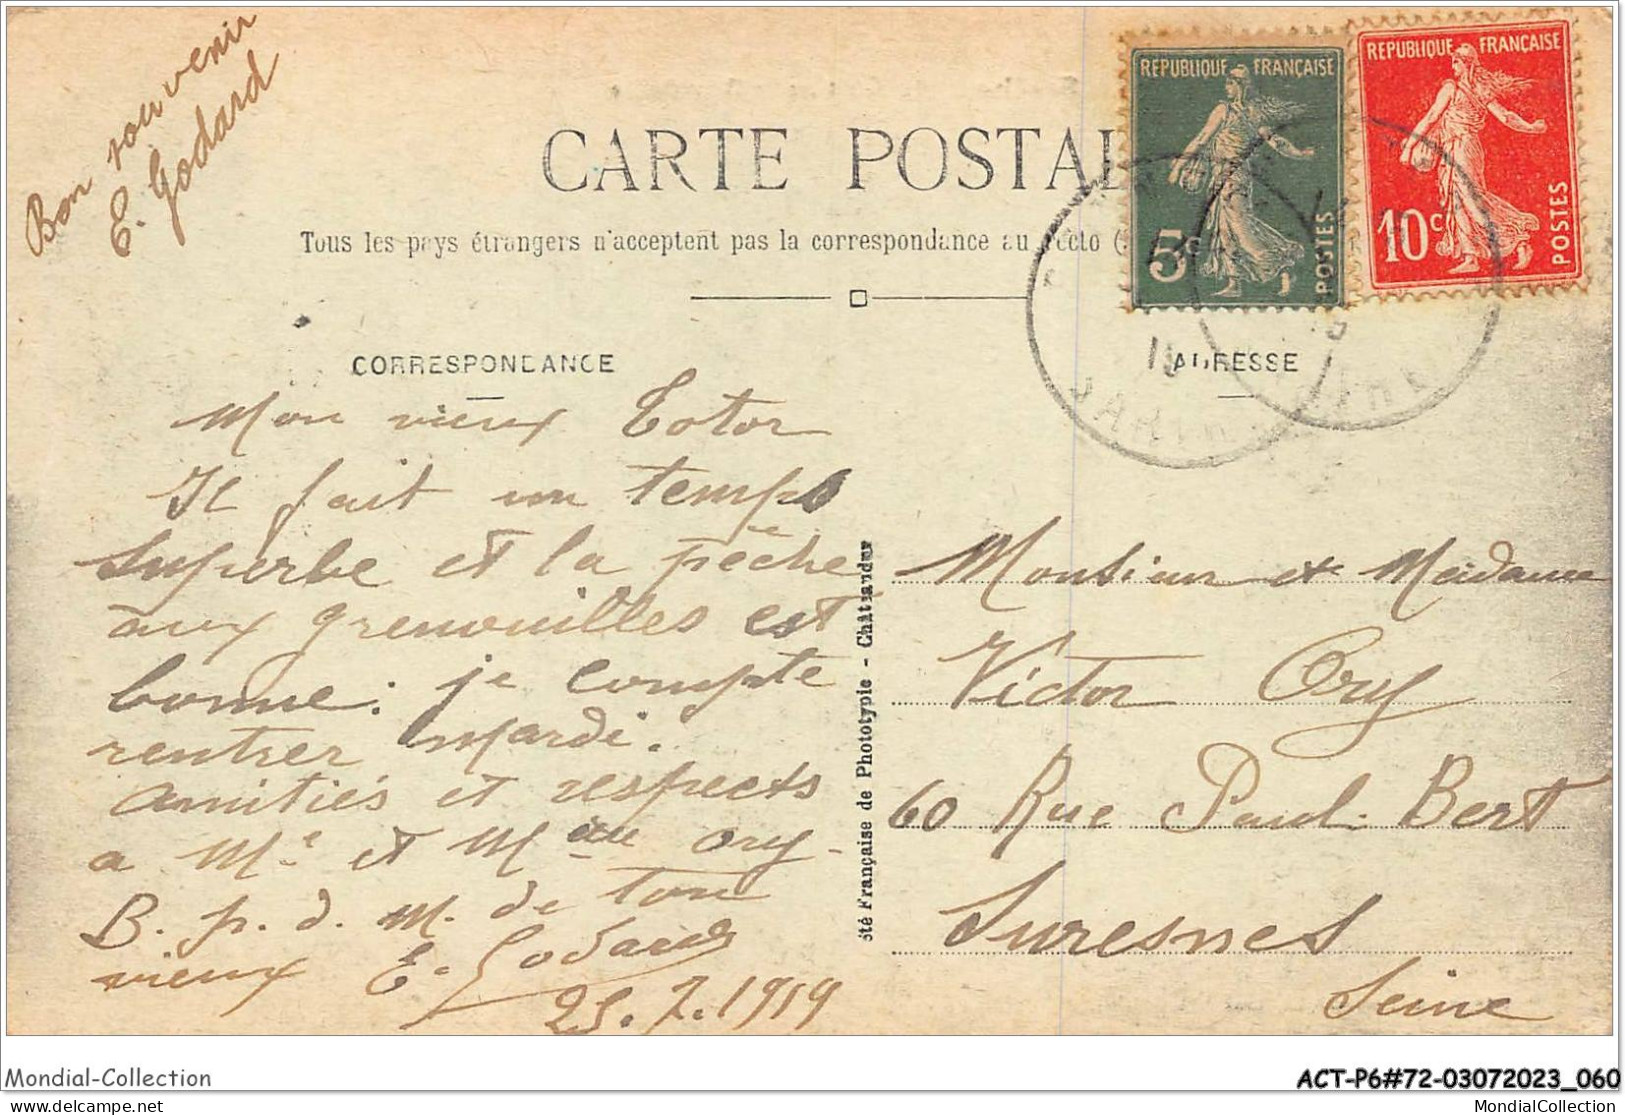 Bon souvenir
E. Godard
REPUBLIQUE FRANÇAISE
5c
POSTES
REPUBLIQUE FRANÇAISE
10c
POSTES
CARTE POSTAL
Tous les pays étrangers n'acceptent pas la correspondance au recto (
CORRESPONDANCE
ADRESSE
Mon vieux Totor
Il fait un temps
superbe et la pêche
aux grenouilles est
bonne : je compte
rentrer mardi.
amitiés et respects
a Mr et Mme Ory -
B. p. d. M. de ton
vieux E. Godard
25.7.1919
été Française de Phototypie - Châteaudun
Monsieur et Madame
Victor Ory
60 Rue Paul Bert
Suresnes
Seine
Mondial-Collection
ACT-P6#72-03072023_060
mondial-collection.delcampe.net
MondialCollection